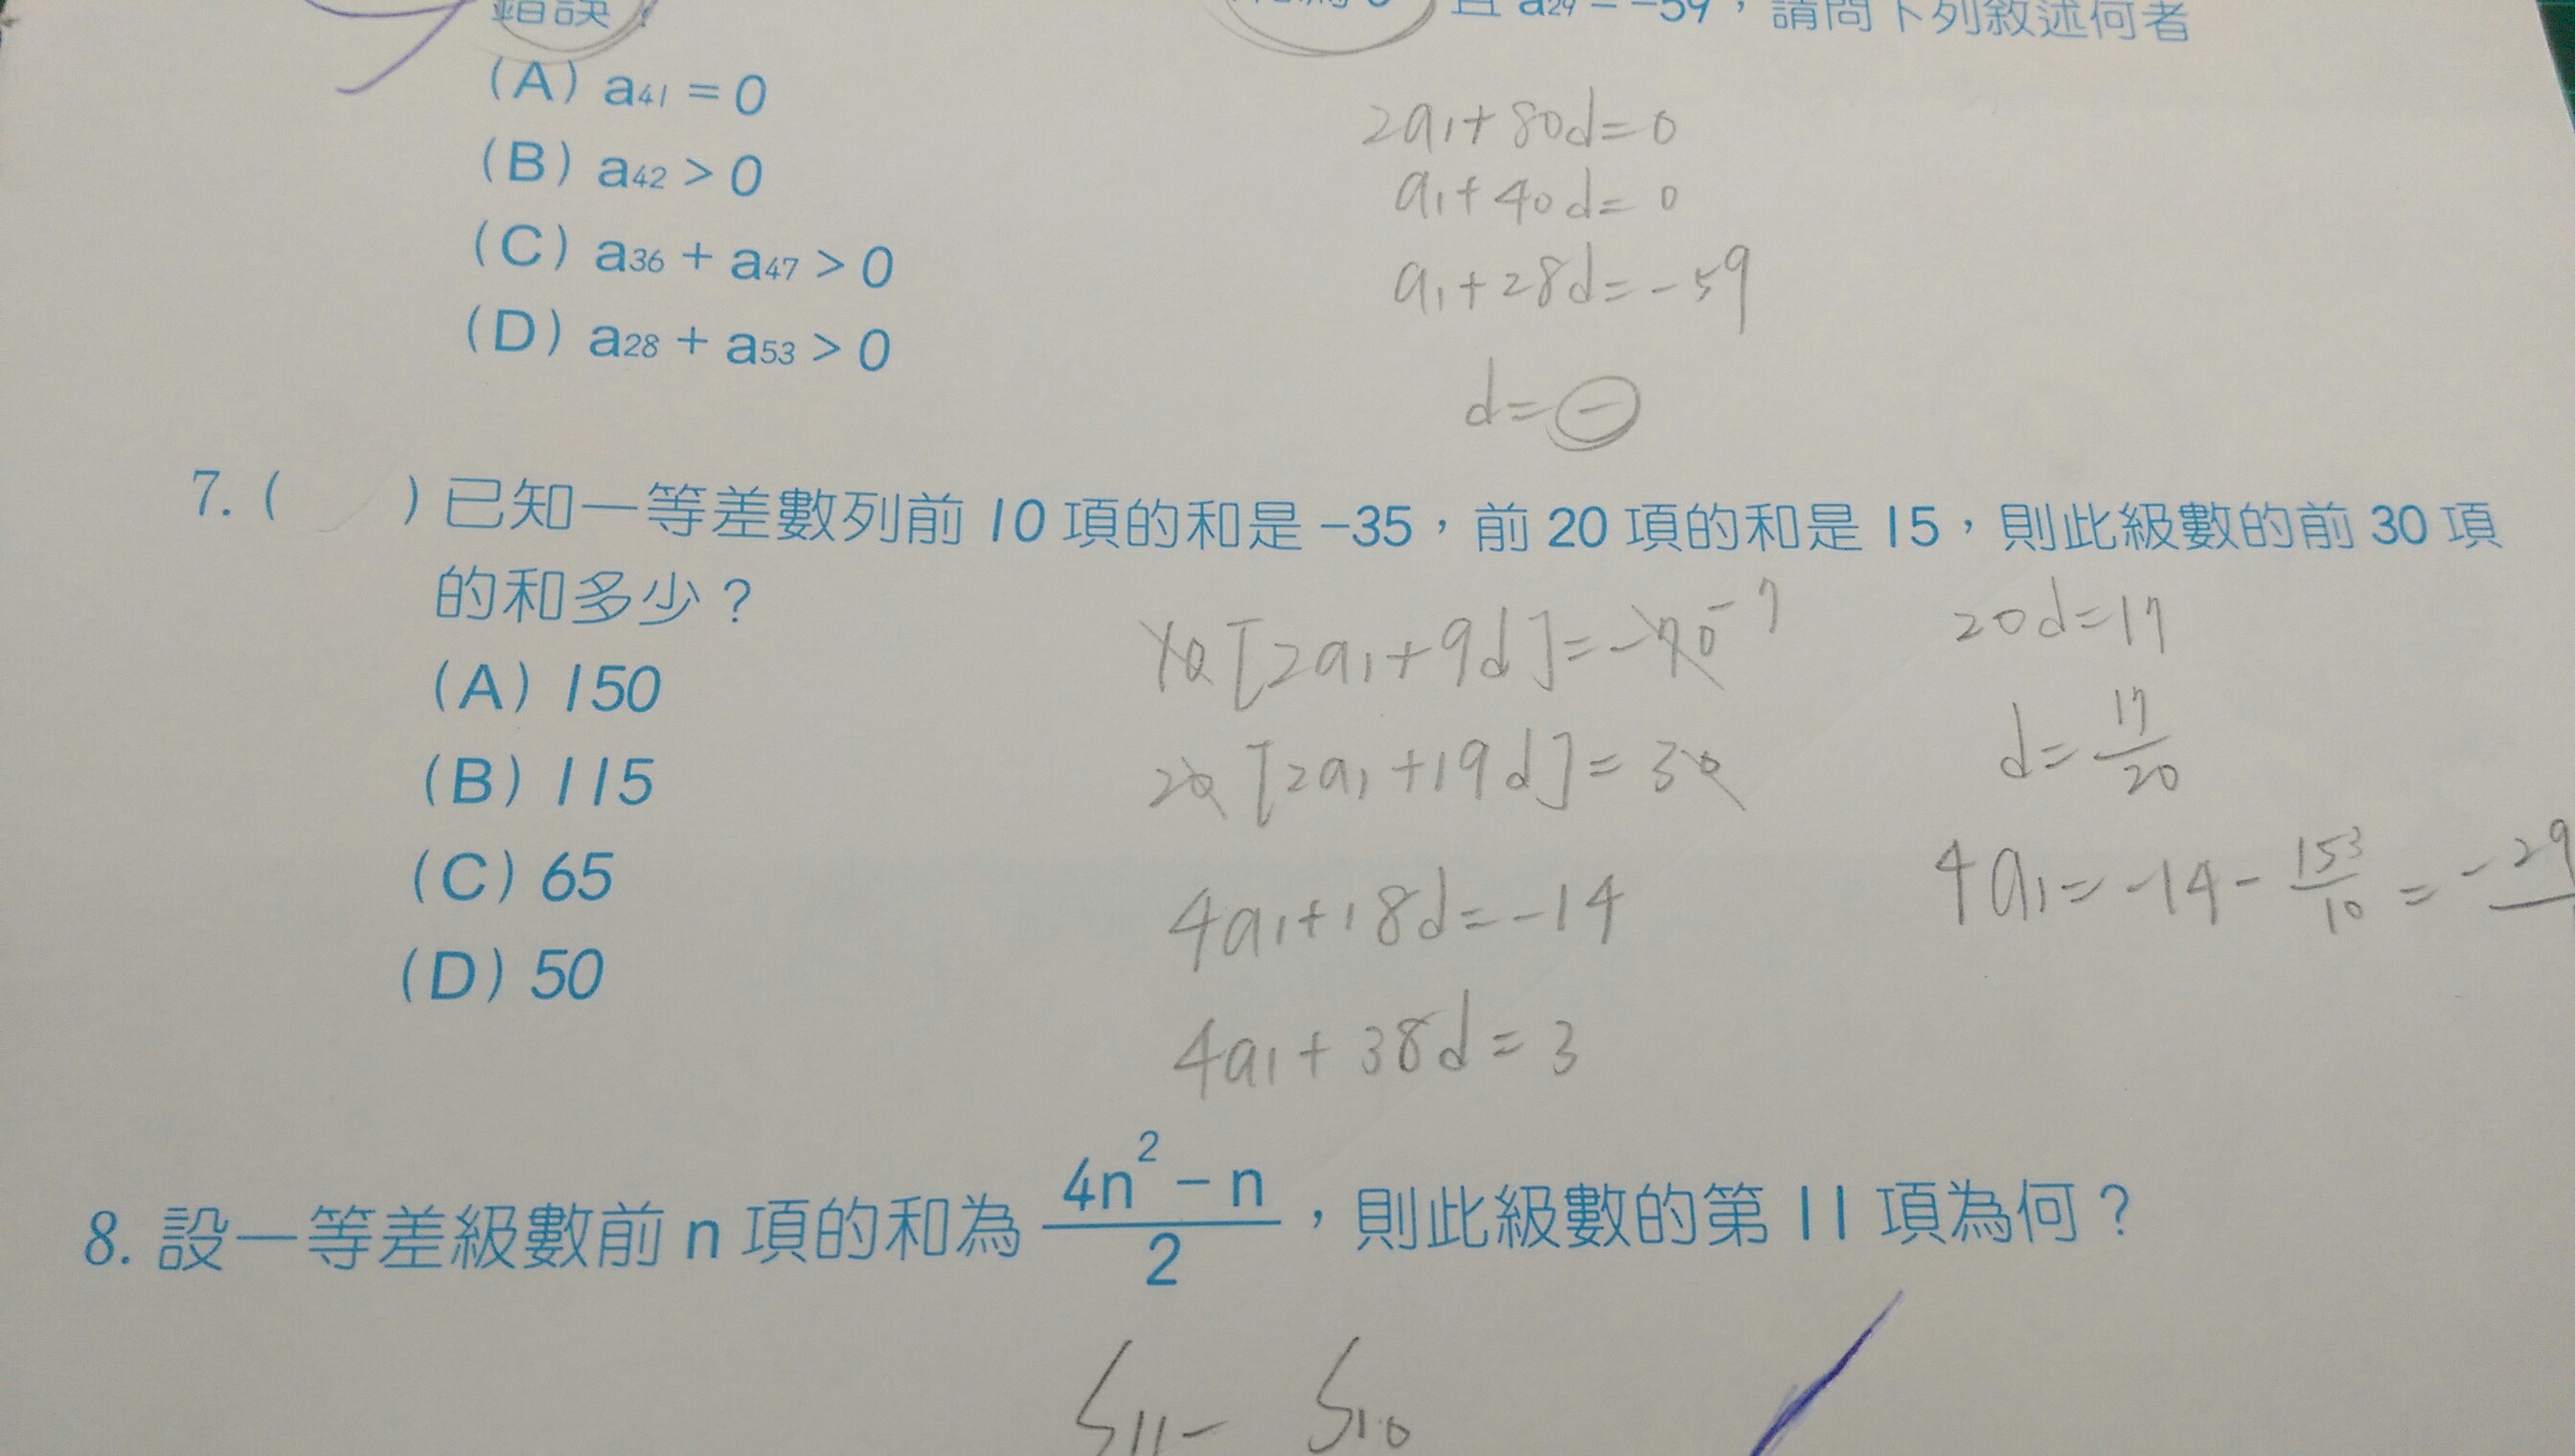 錯誤？
且 a29 = -59，請問下列敘述何者
(A) a41 = 0
(B) a42 > 0
(C) a36 + a47 > 0
(D) a28 + a53 > 0
2a1+80d=0
a1+40d=0
a1+28d=-59
d=-
7. (    ) 已知一等差數列前 10 項的和是 -35，前 20 項的和是 15，則此級數的前 30 項
的和多少？
(A) 150
(B) 115
(C) 65
(D) 50
10[2a1+9d]=-70 -7
20[2a1+19d]=30
4a1+18d=-14
4a1+38d=3
20d=17
d=17/20
4a1=-14-153/10=-29
8. 設一等差級數前 n 項的和為 (4n²-n)/2，則此級數的第 11 項為何？
S11- S10